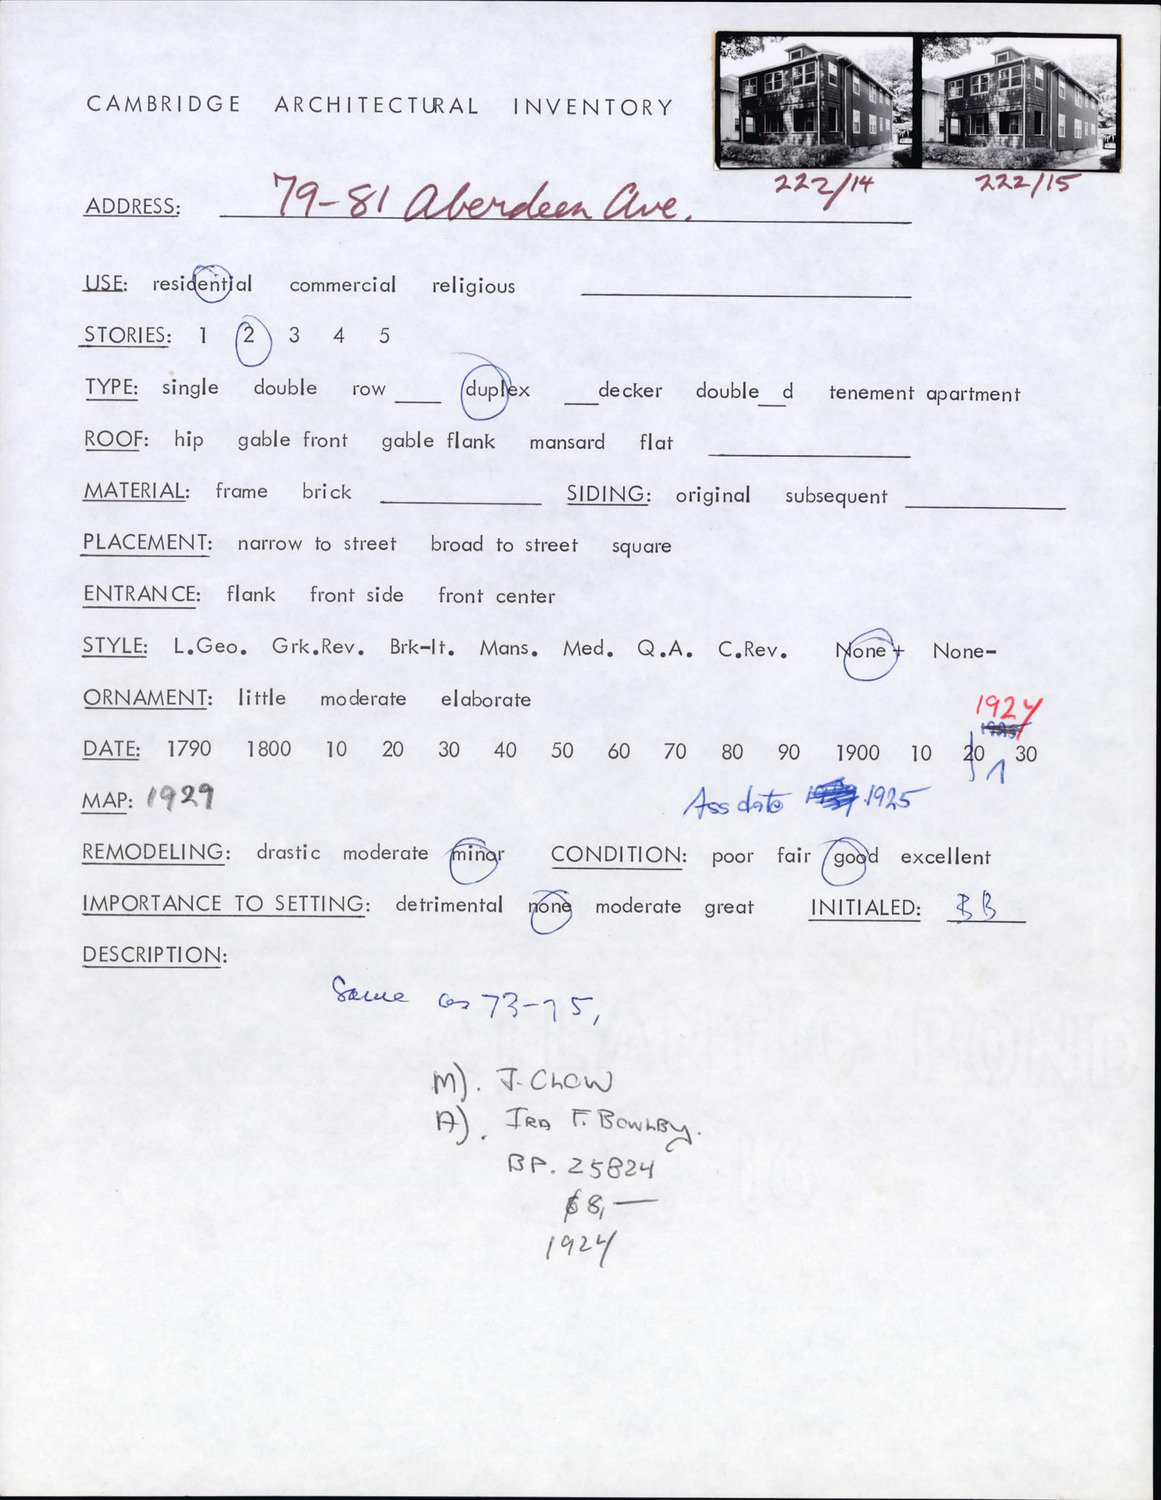 CAMBRIDGE ARCHITECTURAL INVENTORY
222/14 222/15
ADDRESS: 79-81 Aberdeen Ave.
USE: residential commercial religious
STORIES: 1 2 3 4 5
TYPE: single double row ____ duplex ___decker double__d tenement apartment
ROOF: hip gable front gable flank mansard flat
MATERIAL: frame brick SIDING: original subsequent
PLACEMENT: narrow to street broad to street square
ENTRANCE: flank front side front center
STYLE: L.Geo. Grk.Rev. Brk-It. Mans. Med. Q.A. C.Rev. None+ None-
ORNAMENT: little moderate elaborate
1924
DATE: 1790 1800 10 20 30 40 50 60 70 80 90 1900 10 20 30
MAP: 1929 Ass date 1925
REMODELING: drastic moderate minor CONDITION: poor fair good excellent
IMPORTANCE TO SETTING: detrimental none moderate great INITIALED: BB
DESCRIPTION:
Same as 73-75,
M). J. Chow
A). Ira F. Bowlby.
BP. 25824
$8,—
1924